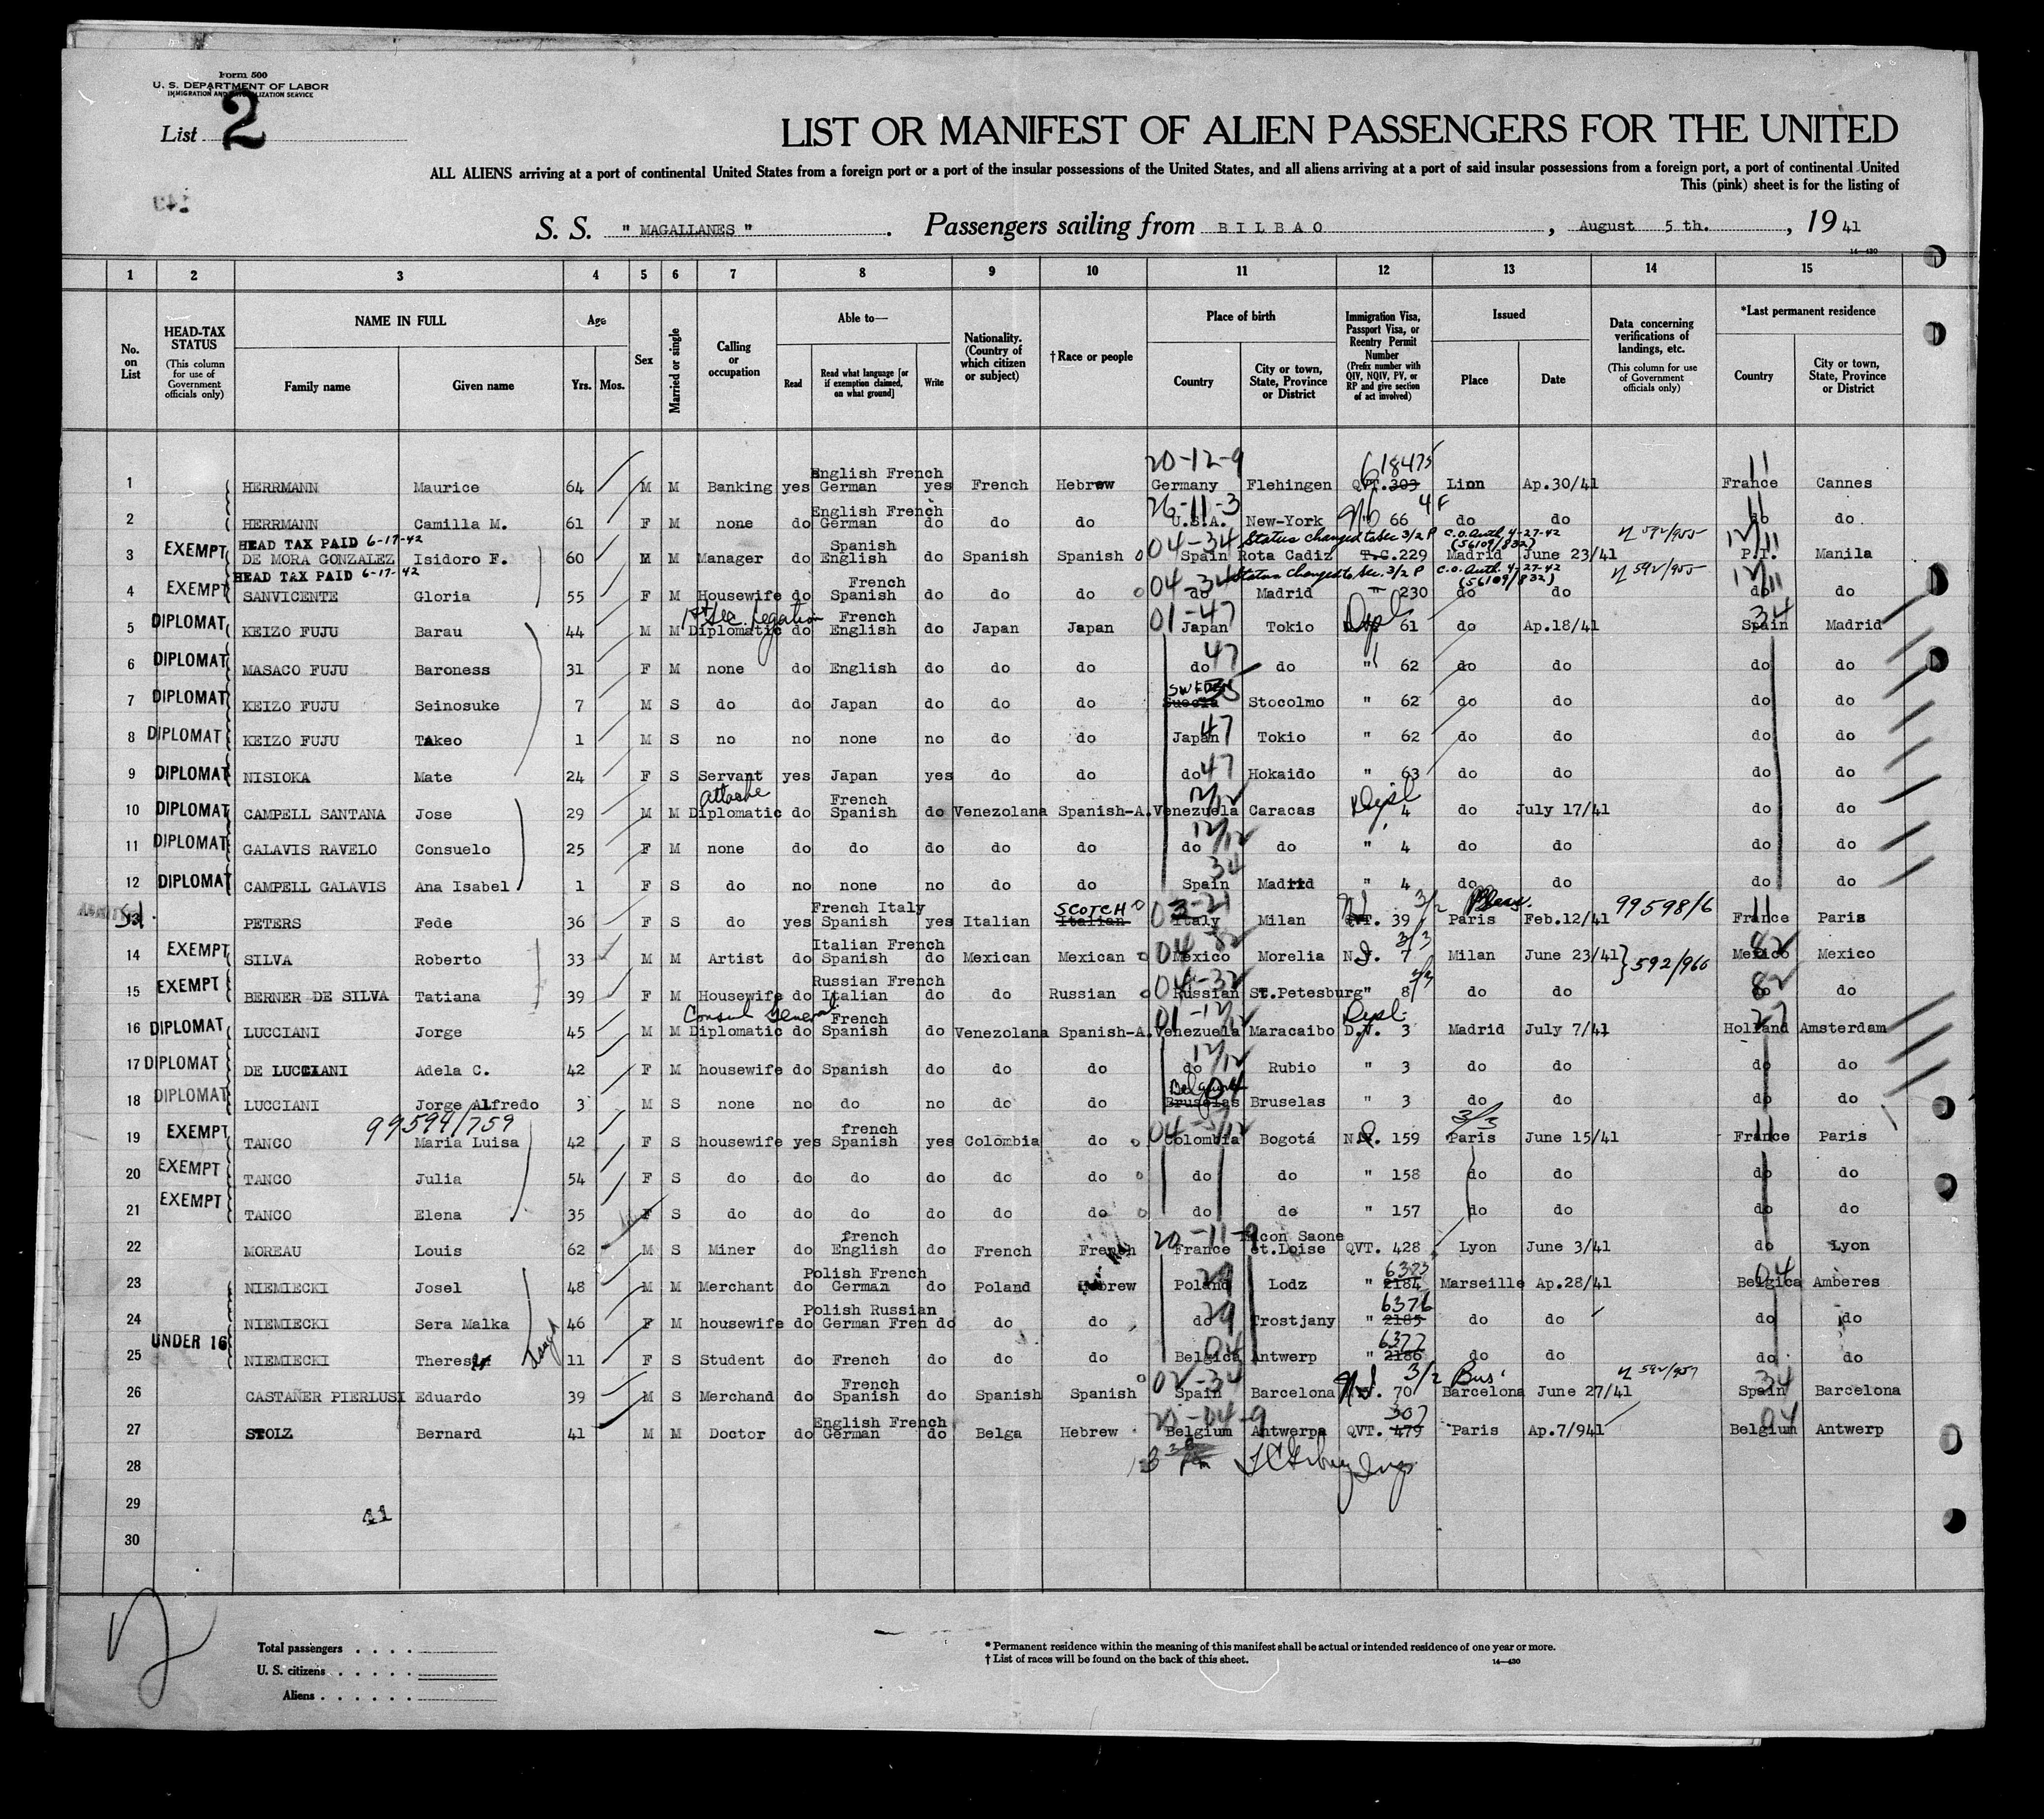 Form 500
U. S. DEPARTMENT OF LABOR
IMMIGRATION AND NATURALIZATION SERVICE
List 2
LIST OR MANIFEST OF ALIEN PASSENGERS FOR THE UNITED
ALL ALIENS arriving at a port of continental United States from a foreign port or a port of the insular possessions of the United States, and all aliens arriving at a port of said insular possessions from a foreign port, a port of continental United
This (pink) sheet is for the listing of
S. S. " MAGALLANES " . Passengers sailing from BILBAO , August 5 th. , 19 41
14—430
1 2 3 4 5 6 7 8 9 10 11 12 13 14 15
No. on List
HEAD-TAX STATUS
(This column for use of Government officials only)
NAME IN FULL
Family name Given name
Age
Yrs. Mos.
Sex
Married or single
Calling or occupation
Able to—
Read
Read what language [or if exemption claimed, on what ground]
Write
Nationality. (Country of which citizen or subject)
†Race or people
Place of birth
Country
City or town, State, Province or District
Immigration Visa, Passport Visa, or Reentry Permit Number
(Prefix number with QIV, NQIV, PV, or RP and give section of act involved)
Issued
Place Date
Data concerning verifications of landings, etc.
(This column for use of Government officials only)
*Last permanent residence
Country
City or town, State, Province or District
20-12-9 618475 11
1 HERRMANN Maurice 64 M M Banking yes English French German yes French Hebrew Germany Flehingen QVT. 303 Linn Ap.30/41 France Cannes
26-11-3 4F 11
2 HERRMANN Camilla M. 61 F M none do English French German do do do U.S.A. New-York 66 do do do do
HEAD TAX PAID 6-17-42 04-34 Status changed to Sec 3/2 P C.O. Auth. 4-27-42 (56109/832) 592/955 12/11
3 EXEMPT DE MORA GONZALEZ Isidoro F. 60 M M Manager do Spanish English do Spanish Spanish Spain Rota Cadiz T.C.229 Madrid June 23/41 P.I. Manila
HEAD TAX PAID 6-17-42 04-34 Status changed to Sec. 3/2 P C.O. Auth. 4-27-42 (56109/832) 592/955 12/11
4 EXEMPT SANVICENTE Gloria 55 F M Housewife do French Spanish do do do do Madrid " 230 do do do do
1st Sec. Legation 01-47 Dipl 34
5 DIPLOMAT KEIZO FUJU Barau 44 M M Diplomatic do French English do Japan Japan Japan Tokio 61 do Ap.18/41 Spain Madrid
47
6 DIPLOMAT MASACO FUJU Baroness 31 F M none do English do do do do do " 62 do do do do
SWEDEN
7 DIPLOMAT KEIZO FUJU Seinosuke 7 M S do do Japan do do do Suecia Stocolmo " 62 do do do do
47
8 DIPLOMAT KEIZO FUJU Takeo 1 M S no no none no do do Japan Tokio " 62 do do do do
47
9 DIPLOMAT NISIOKA Mate 24 F S Servant yes Japan yes do do do Hokaido " 63 do do do do
Attache 12/12 Dipl
10 DIPLOMAT CAMPELL SANTANA Jose 29 M M Diplomatic do French Spanish do Venezolana Spanish-A. Venezuela Caracas 4 do July 17/41 do do
12/12
11 DIPLOMAT GALAVIS RAVELO Consuelo 25 F M none do do do do do do do " 4 do do do do
34
12 DIPLOMAT CAMPELL GALAVIS Ana Isabel 1 F S do no none no do do Spain Madrid " 4 do do do do
SCOTCH 03-21 3/2 99598/6 11
13 PETERS Fede 36 F S do yes French Italy Spanish yes Italian Italian Italy Milan QVT. 39 Paris Feb.12/41 France Paris
04-82 3/3 82
14 EXEMPT SILVA Roberto 33 M M Artist do Italian French Spanish do Mexican Mexican Mexico Morelia 7 Milan June 23/41 592/960 Mexico Mexico
04-32 3/3 82
15 EXEMPT BERNER DE SILVA Tatiana 39 F M Housewife do Russian French Italian do do Russian Russian St.Petesburg " 8 do do do do
Consul General 01-12/12 Dipl. 27
16 DIPLOMAT LUCCIANI Jorge 45 M M Diplomatic do French Spanish do Venezolana Spanish-A. Venezuela Maracaibo D.V. 3 Madrid July 7/41 Holland Amsterdam
12/12
17 DIPLOMAT DE LUCCIANI Adela C. 42 F M housewife do Spanish do do do do Rubio " 3 do do do do
Belgium 04
18 DIPLOMAT LUCCIANI Jorge Alfredo 3 M S none no do no do do Bruselas Bruselas " 3 do do do do
99594/759 3/3 11
19 EXEMPT TANCO Maria Luisa 42 F S housewife yes french Spanish yes Colombia do Colombia Bogotá 159 Paris June 15/41 France Paris
20 EXEMPT TANCO Julia 54 F S do do do do do do do do " 158 do do do do
21 EXEMPT TANCO Elena 35 F S do do do do do do do do " 157 do do do do
20-11-9
22 MOREAU Louis 62 M S Miner do french English do French French France Saone et.Loise QVT. 428 Lyon June 3/41 do Lyon
29 6375 04
23 NIEMIECKI Josel 48 M M Merchant do Polish French German do Poland Hebrew Poland Lodz " 2184 Marseille Ap.28/41 Belgica Amberes
29 6376
24 NIEMIECKI Sera Malka 46 F M housewife do Polish Russian German Fren do do do do Trostjany " 2185 do do do do
04 6377
25 UNDER 16 NIEMIECKI Therese 11 F S Student do French do do do Belgica Antwerp " 2186 do do do do
02-34 3/2 Bus' 592/957 34
26 CASTAÑER PIERLUSI Eduardo 39 M S Merchand do French Spanish do Spanish Spanish Spain Barcelona 70 Barcelona June 27/41 Spain Barcelona
20-04-9 307 04
27 STOLZ Bernard 41 M M Doctor do English French German do Belga Hebrew Belgium Antwerpa QVT. 479 Paris Ap.7/941 Belgium Antwerp
28
29
41
30
Total passengers . . . .
U. S. citizens . . . . .
Aliens . . . . . .
* Permanent residence within the meaning of this manifest shall be actual or intended residence of one year or more.
† List of races will be found on the back of this sheet.
14—430